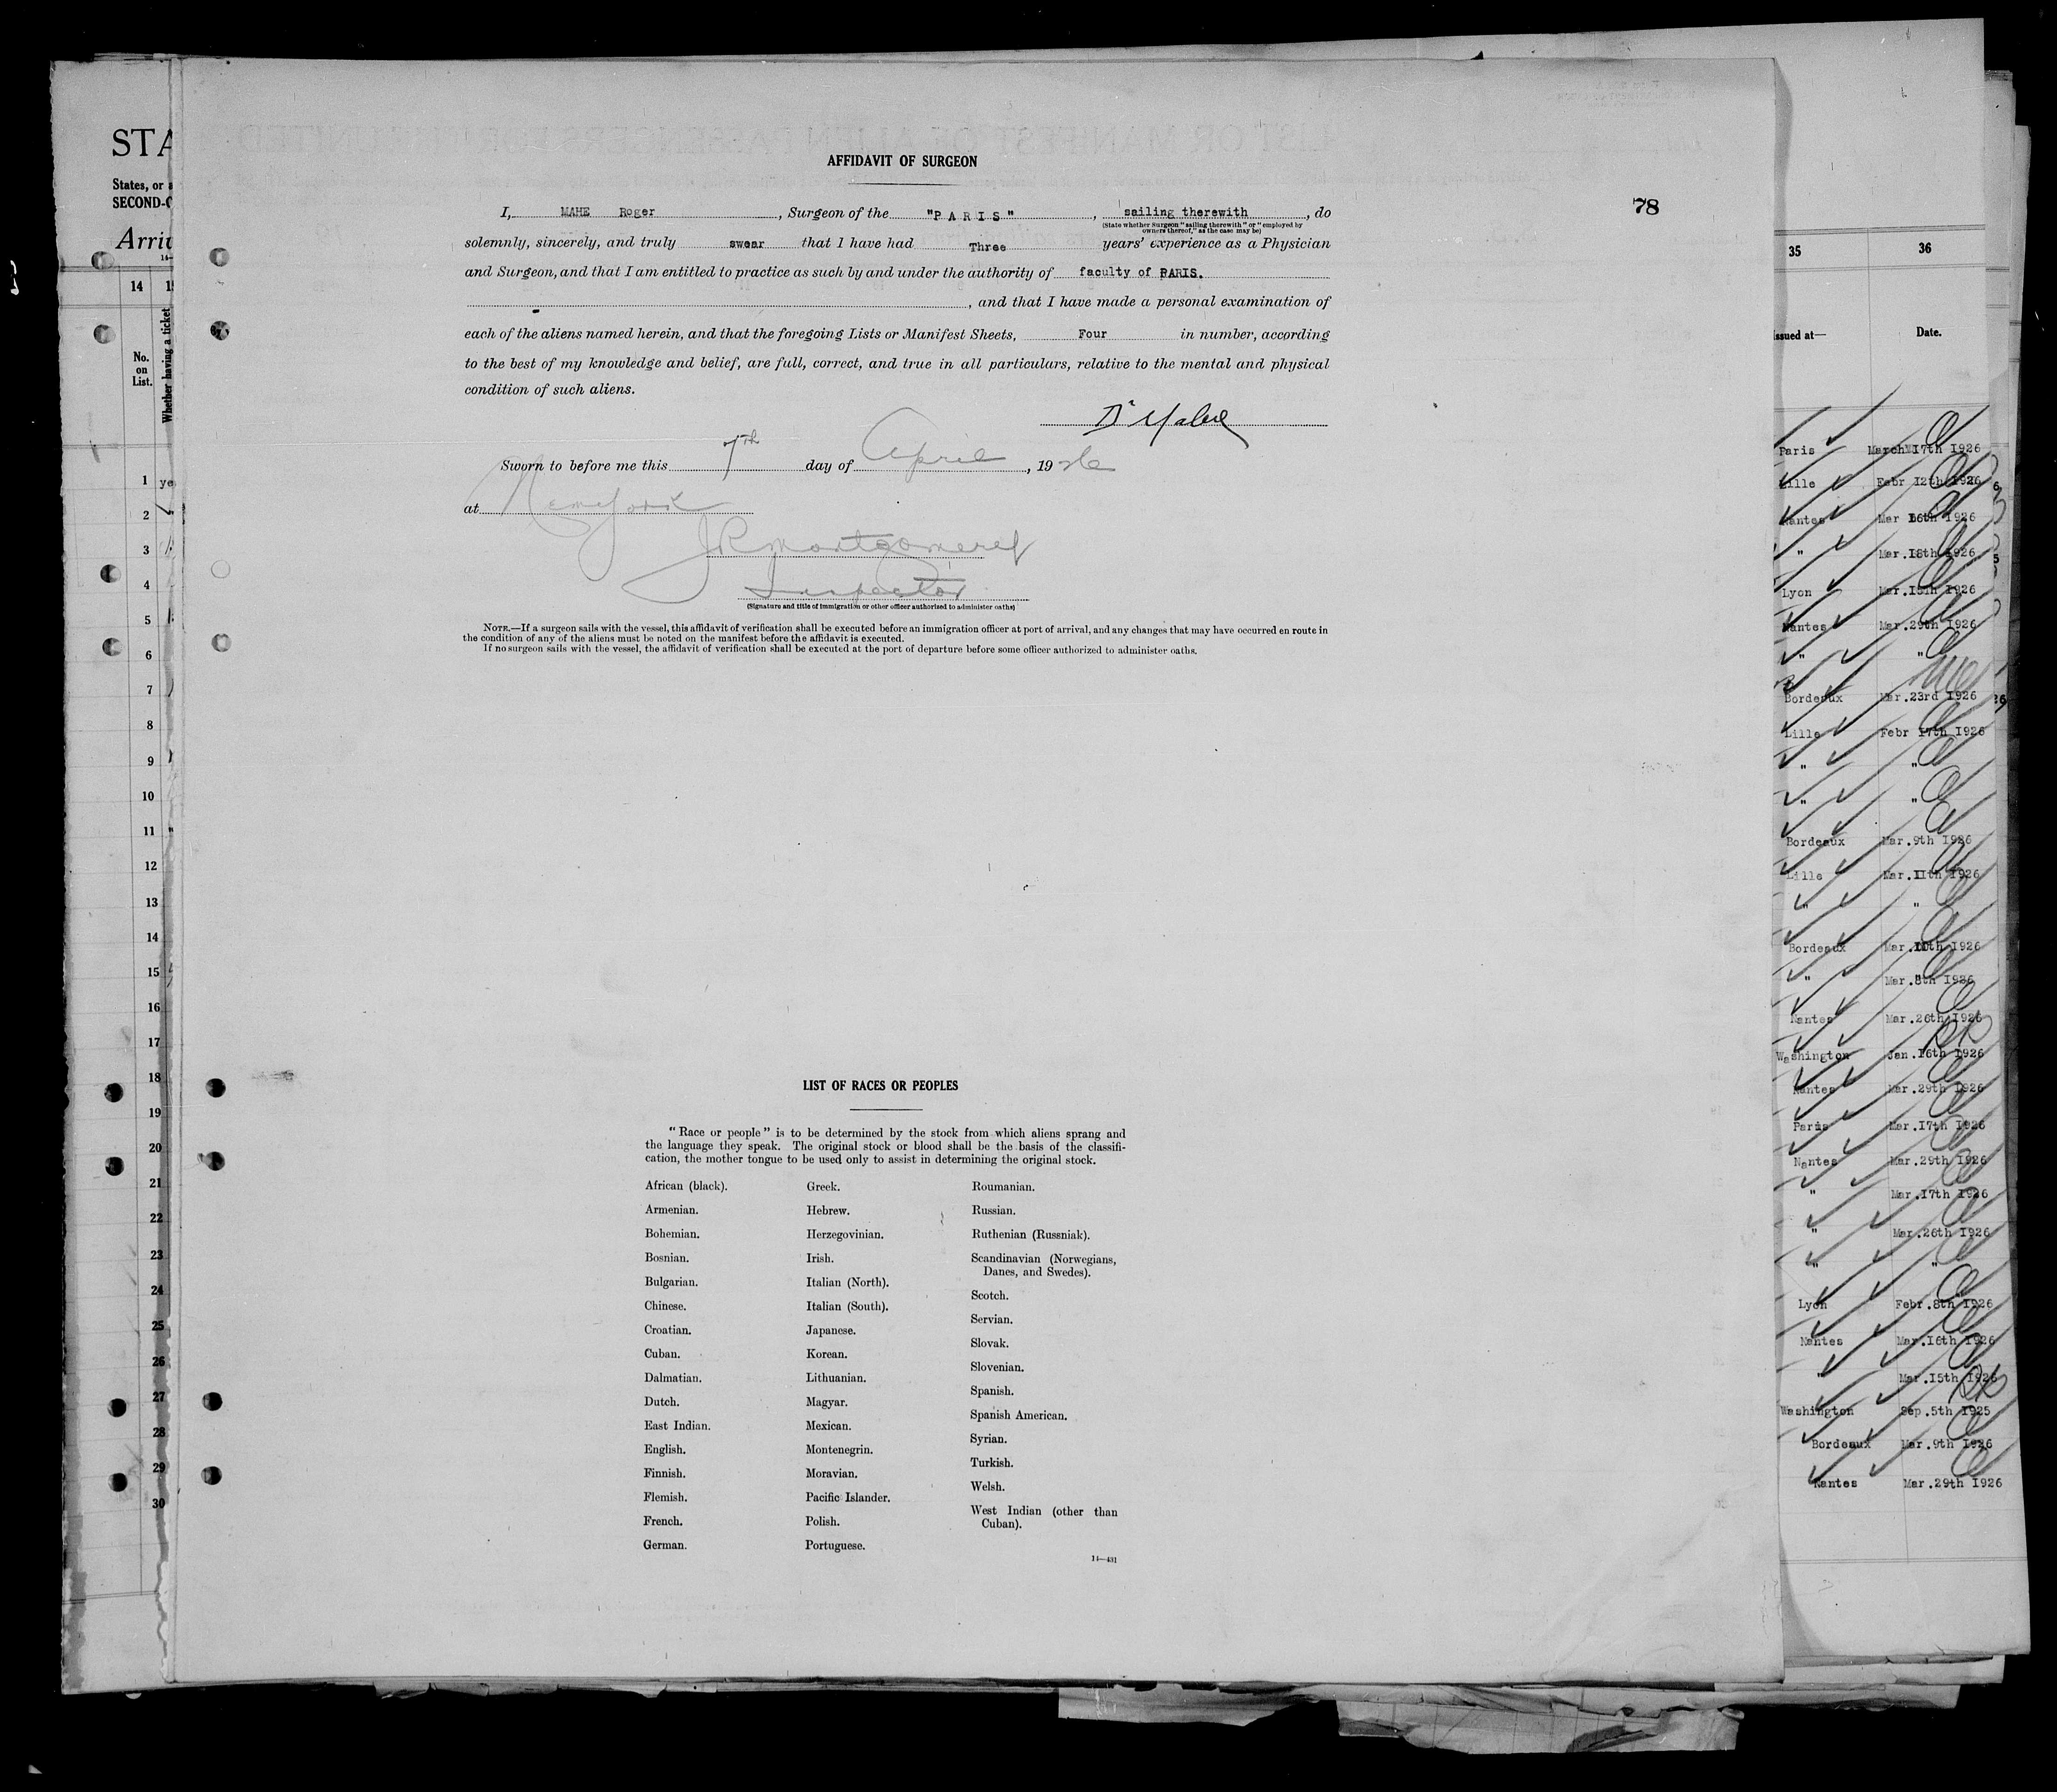 AFFIDAVIT OF SURGEON
78
I, MAHE Roger, Surgeon of the "PARIS", sailing therewith, do
(State whether Surgeon "sailing therewith" or "employed by
owners thereof," as the case may be)
solemnly, sincerely, and truly swear that I have had Three years' experience as a Physician
and Surgeon, and that I am entitled to practice as such by and under the authority of faculty of PARIS.
, and that I have made a personal examination of
each of the aliens named herein, and that the foregoing Lists or Manifest Sheets, Four in number, according
to the best of my knowledge and belief, are full, correct, and true in all particulars, relative to the mental and physical
condition of such aliens.
Dr Mahé
Sworn to before me this 7th day of April, 1926
at New York
J R Montgomery
Inspector
(Signature and title of immigration or other officer authorized to administer oaths)
NOTE.—If a surgeon sails with the vessel, this affidavit of verification shall be executed before an immigration officer at port of arrival, and any changes that may have occurred en route in
the condition of any of the aliens must be noted on the manifest before the affidavit is executed.
If no surgeon sails with the vessel, the affidavit of verification shall be executed at the port of departure before some officer authorized to administer oaths.
LIST OF RACES OR PEOPLES
"Race or people" is to be determined by the stock from which aliens sprang and
the language they speak. The original stock or blood shall be the basis of the classifi-
cation, the mother tongue to be used only to assist in determining the original stock.
African (black).
Armenian.
Bohemian.
Bosnian.
Bulgarian.
Chinese.
Croatian.
Cuban.
Dalmatian.
Dutch.
East Indian.
English.
Finnish.
Flemish.
French.
German.
Greek.
Hebrew.
Herzegovinian.
Irish.
Italian (North).
Italian (South).
Japanese.
Korean.
Lithuanian.
Magyar.
Mexican.
Montenegrin.
Moravian.
Pacific Islander.
Polish.
Portuguese.
Roumanian.
Russian.
Ruthenian (Russniak).
Scandinavian (Norwegians,
Danes, and Swedes).
Scotch.
Servian.
Slovak.
Slovenian.
Spanish.
Spanish American.
Syrian.
Turkish.
Welsh.
West Indian (other than
Cuban).
14—431
STA
States, or
SECOND-C
Arriv
14
No.
on
List.
Whether having a ticket
1 ye
2
3
4
5
6
7
8
9
10
11 "
12
13
14
15
16
17
18
19
20
21
22
23
24
25
26
27
28
29
30
35 36
issued at— Date.
Paris March 17th 1926
Lille Febr 12th 1926
Nantes Mar 16th 1926
" Mar.18th 1926
Lyon Mar.15th 1926
Nantes Mar.29th 1926
" "
Bordeaux Mar.23rd 1926
Lille Febr 17th 1926
" "
" "
Bordeaux Mar.9th 1926
Lille Mar.11th 1926
" "
Bordeaux Mar.10th 1926
" Mar.8th 1926
Nantes Mar.26th 1926
Washington Jan.16th 1926
Nantes Mar.29th 1926
Paris Mar.17th 1926
Nantes Mar.29th 1926
" Mar.17th 1926
" Mar.26th 1926
" "
Lyon Febr.8th 1926
Nantes Mar.16th 1926
" Mar.15th 1926
Washington Sep.5th 1925
Bordeaux Mar.9th 1926
Nantes Mar.29th 1926